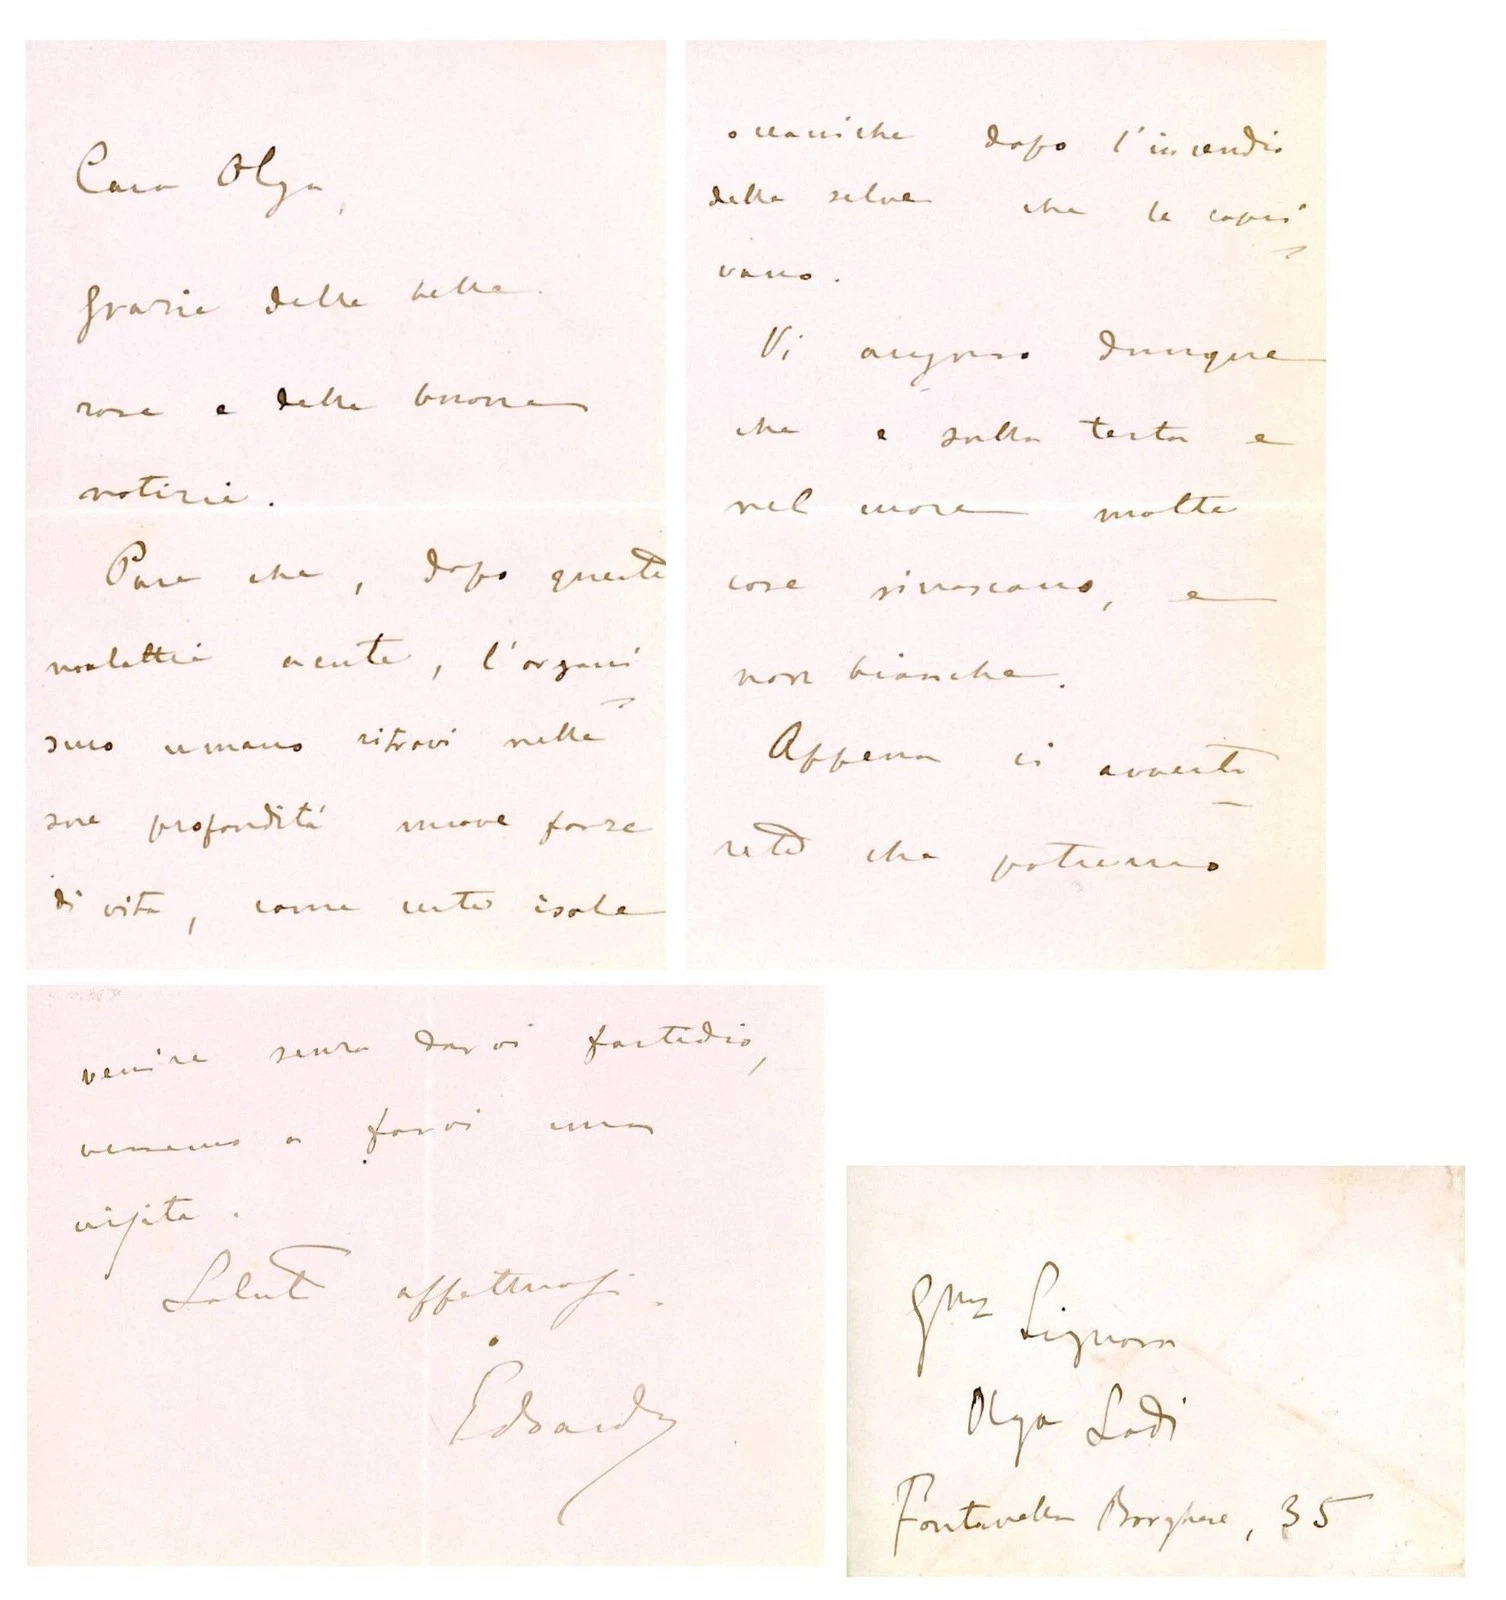 Cara Olga,
grazie delle belle
rose e delle buone
notizie.
Pare che, dopo queste
malattie acute, l'organi
smo umano ritrovi nelle
sue profondità nuove forze
di vita, come certe isole
oceaniche dopo l'incendio
delle selve che le copri
vano.
Vi auguro dunque
che e sulla testa e
nel cuore molte
cose rinascano, e
non bianche.
Appena ci avverti
rete che potremo
venire senza darvi fastidio,
verremo a farvi una
visita.
Saluti affettuosi.
Edoardo
Olga Lodi
Signora
Fontanella Borghese, 35